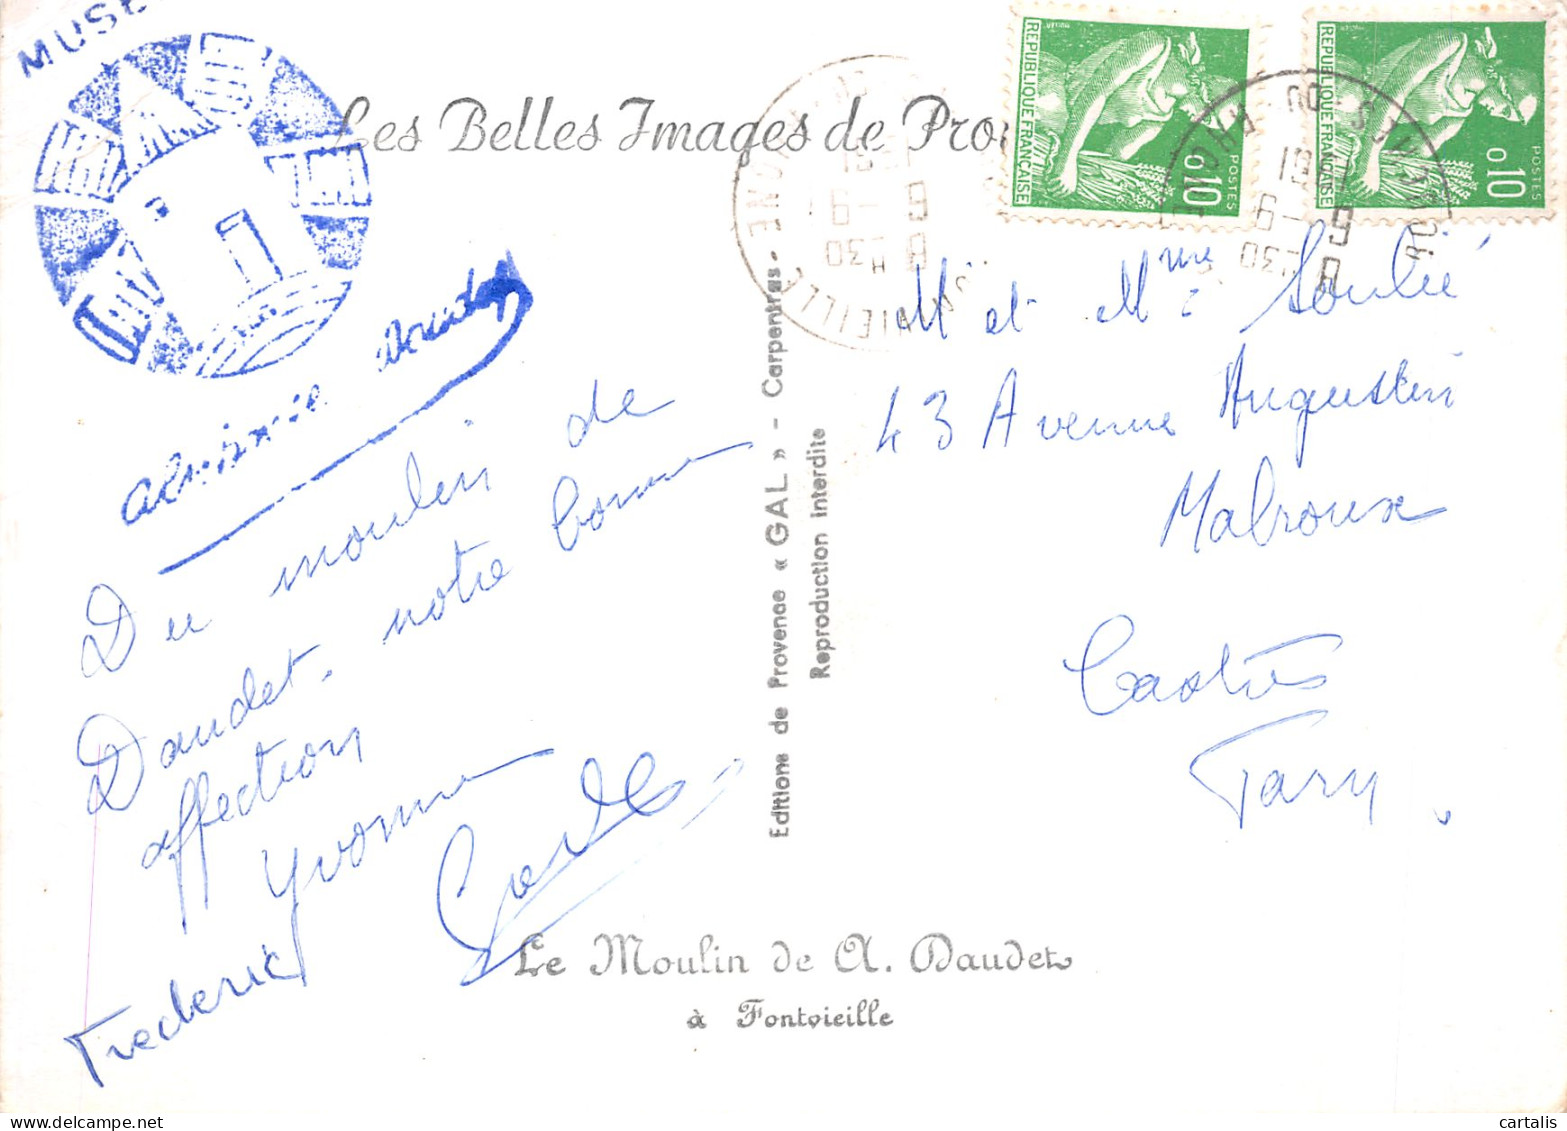 MUSE
Les Belles Images de Pro
REPUBLIQUE FRANÇAISE
POSTES
0,10
REPUBLIQUE FRANÇAISE
POSTES
0,10
Alphonse Daudet
Du moulin de
Daudet. notre bonne
affection
Yvonne
Frederic
Editions de Provence « GAL » - Carpentras -
Reproduction interdite
M et Mme Soulié
43 Avenue Augustin
Malroux
Castres
Tarn
Le Moulin de A. Daudet
à Fontvieille
cartalis
delcampe.net